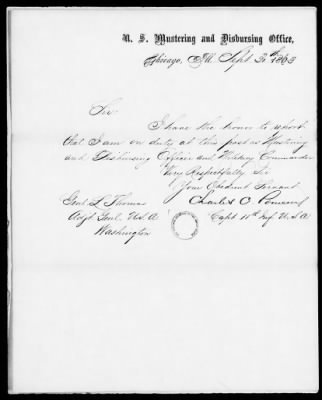 U. S. Mustering and Disbursing Office,
Chicago, Ill. Sept 3th 1863
Sir
I have the honor to report
that I am on duty at this post as Mustering
and Disbursing Officer and Military Commander
Very Respectfully Sir
Your Obedient Servant
Genl L Thomas
Charles C
Adjt Genl. U.S.A
Capt 11th Inf. U.S.A
Washington